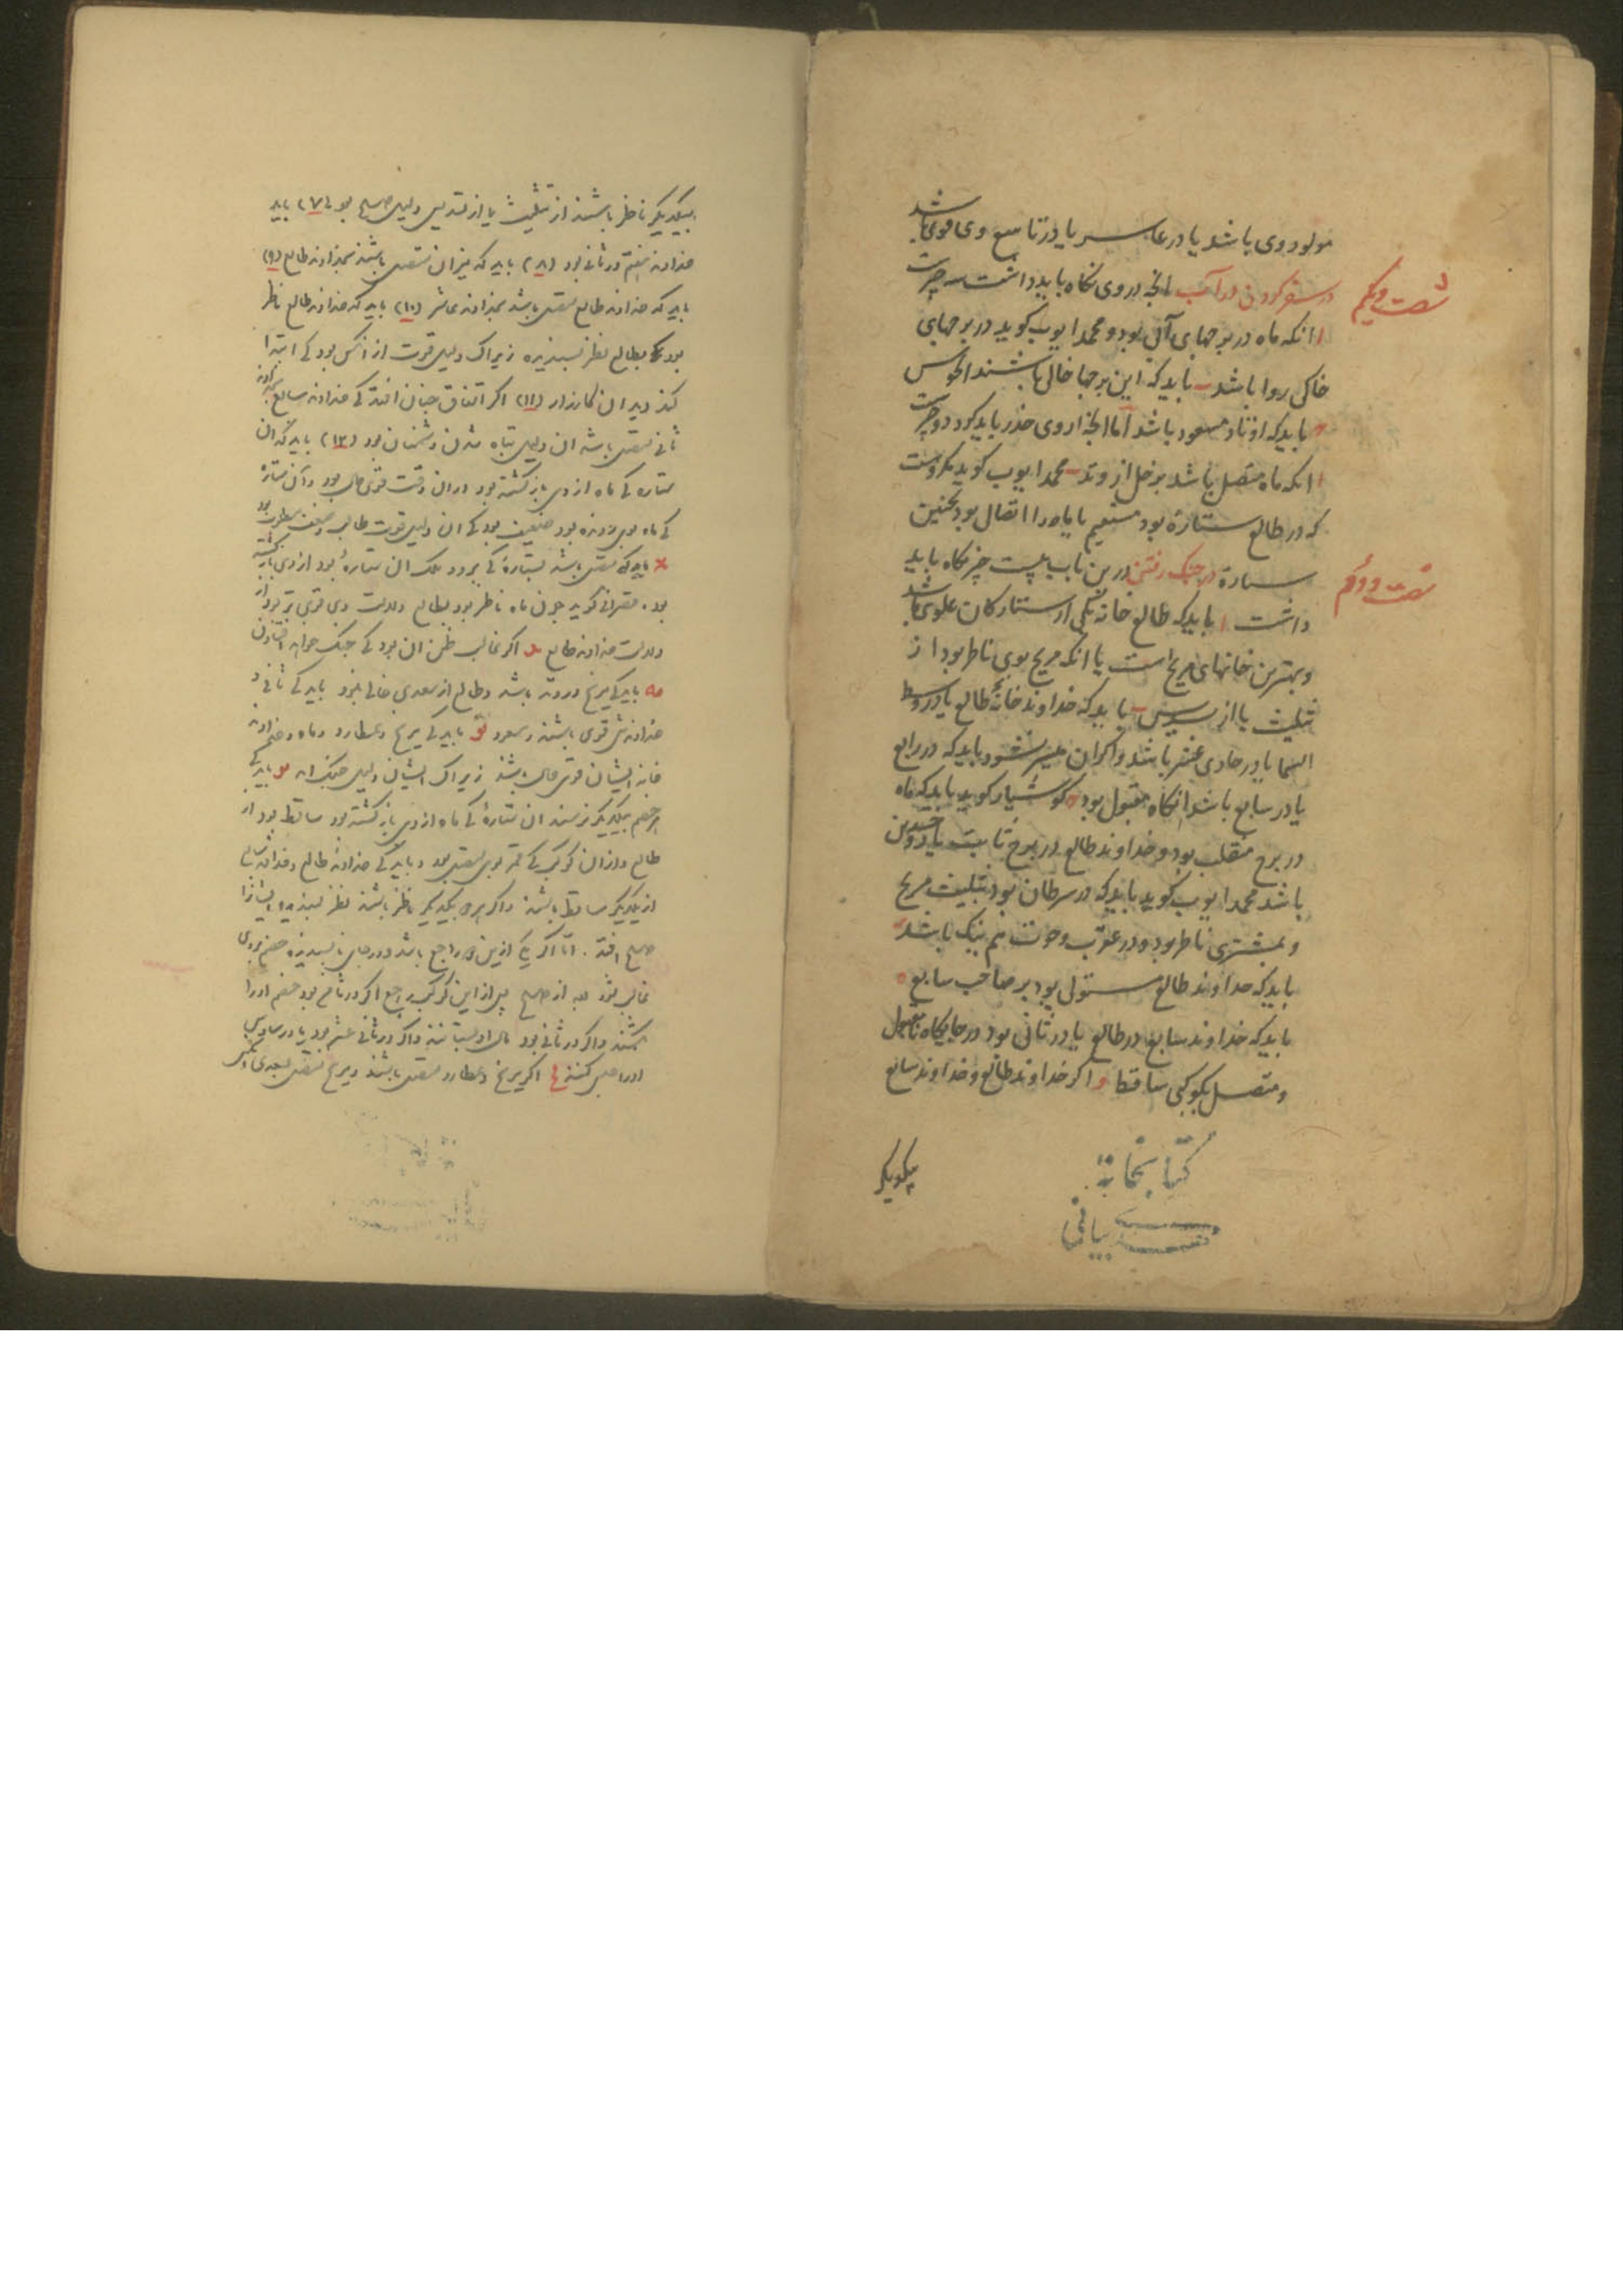 مولود وی باشد یا در عاشر یا در تاسع وی قوی باشد
شصت و یکم
در سفر کردن در آب انچه در وی نگاه باید داشت سه چیزست
ا انکه ماه در برجهای آبی بود و محمد ایوب گوید در برجهای
خاکی روا باشد ب باید که این برجها خالی باشند از نحوس
باید که اوتاد مسعود باشد اما انچه از وی حذر باید کرد دو چیزست
ا انکه ماه متصل باشد بزحل از وتد ب محمد ایوب گوید مکروهست
که در طالع ستاره بود مستقیم یا ماه را اتصال بود بچنین
شصت و دوم
ستاره در جنک رفتن درین باب بیست چیز نگاه باید
داشت ا باید که طالع خانه یکی از ستارکان علوی باشد
و بهترین خانهای مریخ است یا انکه مریخ بوی ناظر بود از
تثلیث یا از تسدیس ب باید که خداوند خانه طالع یا در وسط
السما یا در حادی عشر باشد و اکر ان میسر نشود باید که در رابع
یا در سابع باشد انکاه مقبول بود کوشیار گوید باید که ماه
در برج منقلب بود و خداوند طالع در برج ثابت یا ذوجسدین
باشد محمد ایوب گوید باید که در سرطان بود بتثلیث مریخ
و بمشتری ناظر بود و در عقرب و حوت هم نیک باشد
باید که خداوند طالع مستولی بود بر صاحب سابع ه
باید که خداوند سابع در طالع یا در ثانی بود در جایگاه نامقبول
و متصل بکوکبی ساقط و اکر خداوند طالع و خداوند سابع
بیکدیکر
کتابخانه
بیکدیکر ناظر باشند از تثلیث یا از تسدیس دلیل صلح بود (۷) باید
خداوند هفتم در ثانی بود (۸) باید که نیران متصل باشند بخداوند طالع (۹)
باید که خداوند طالع متصل باشد بخداوند عاشر (۱۰) باید که خداوند طالع ناظر
بود بطالع نظر پسندیده زیراک دلیل قوت از انکس بود کی ابتدا
کند در ان کارزار (۱۱) اکر اتفاق چنان افتد کی خداوند سابع بخداوند
ثانی متصل باشد ان دلیل تباه شدن دشمنان بود (۱۲) باید که ان
ستاره کی ماه از وی بازکشته بود در ان وقت قوی حال بود و آن ستاره
کی ماه بوی رونده بود ضعیف بود کی ان دلیل قوت طالب و ضعف مطلوب بود
باید که متصل باشد بستاره کی بود ان ستاره بود از وی بازکشته
بود. قصرانی کوید چون ماه ناظر بود بطالع ولادت وی قوی تر بود از
ولادت خداوند طالع ید اکر غالب ظن ان بود کی جنک خواهد افتادن
یه باید کی مریخ در وتد باشد و طالع از سعدی خالی نبود باید کی ثانی و
خداوندش قوی باشند و مسعود یو باید کی مریخ و عطارد و ماه و خداوند
خانه ایشان قوی حال باشند زیراک ایشان دلیل جنک اند یز باید کی
هر دو خصم بیکدیکر نرسند ان ستاره کی ماه از وی بازکشته بود ساقط بود از
طالع و از ان کوکب کی قمر بوی متصل بود و باید کی خداوند طالع و خداوند سابع
از یکدیکر ساقط باشند و اکر هر دو بیکدیکر ناظر باشند نظر پسندیده ایشانرا
صلح افتد. اما اکر یکی ازین دو راجع باشد و در جای ناپسندیده خصم بر وی
غالب شود بعد از صلح پس از این کوکب راجع اکر در ثامن بود خصم او را
بکشند و اکر در ثانی بود مال او بستانند و اکر در ثانی عشر بود یا در سادس
او را حبس کنند اکر مریخ و عطارد متصل باشند و مریخ متصل بسعدی